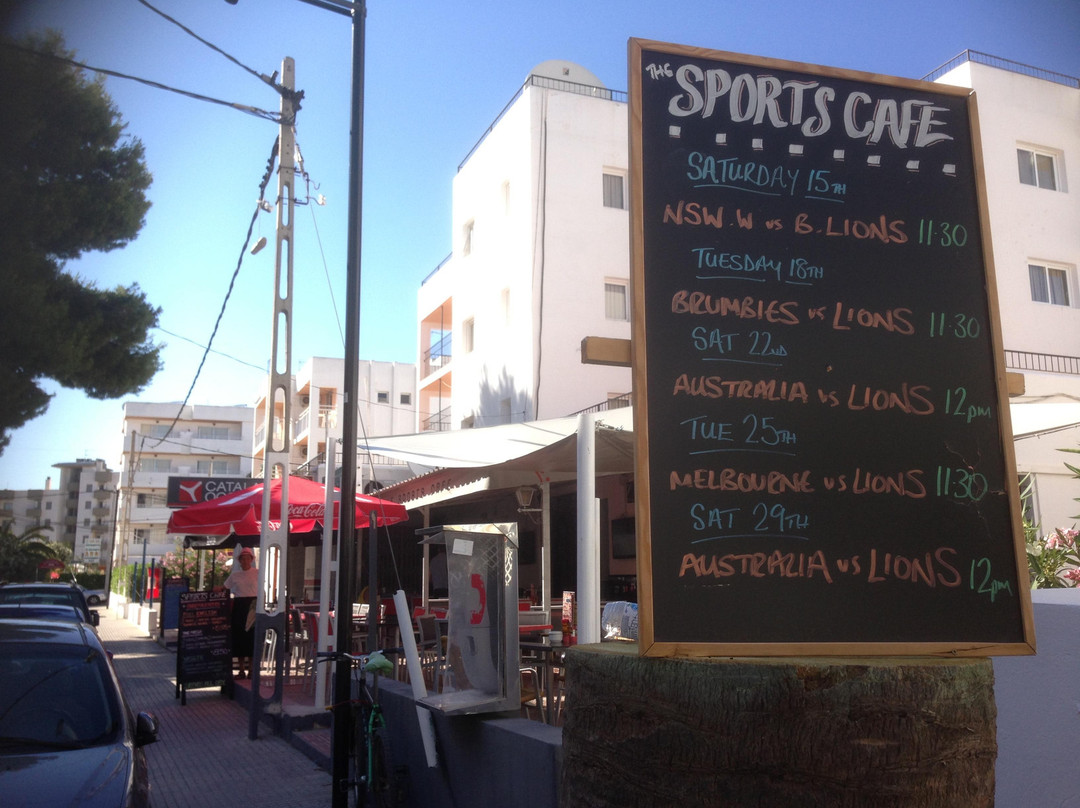 THE SPORTS CAFE
SATURDAY 15TH
NSW.W vs B.LIONS 11.30
TUESDAY 18TH
BRUMBIES vs LIONS 11:30
SAT 22ND
AUSTRALIA vs LIONS 12pm
TUE 25TH
MELBOURNE vs LIONS 11:30
SAT 29TH
AUSTRALIA vs LIONS 12pm
CATAL
Coca-Cola
SPORTS CAFE